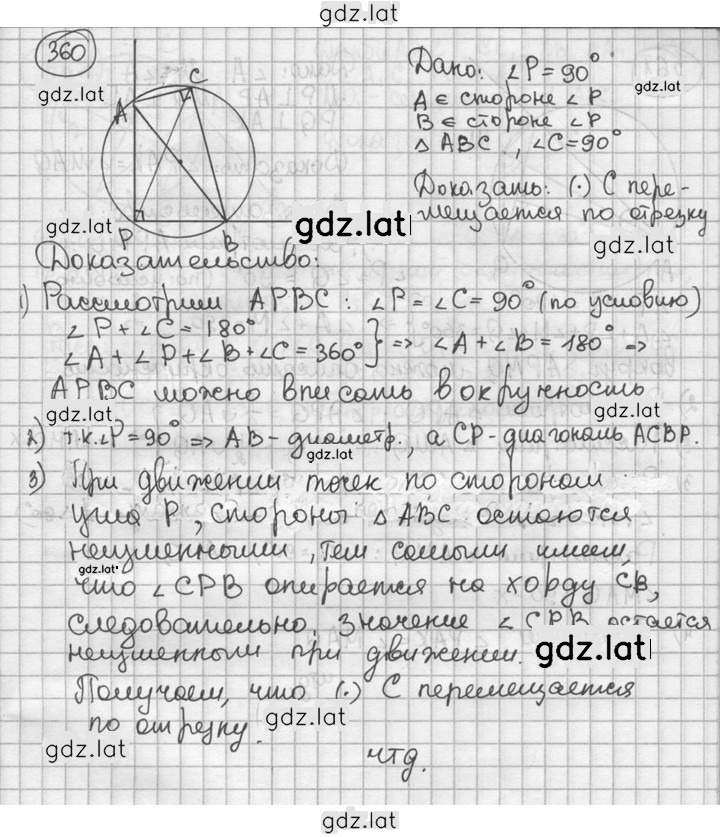 gdz.lat
360
gdz.lat
C
A
P
B
Дано: ∠P = 90°
A ∈ стороне ∠P
gdz.lat
B ∈ стороне ∠P
△ ABC, ∠C = 90°
Доказать: (·) C пере-
мещается по отрезку
gdz.lat
gdz.lat
gdz.lat
Доказательство:
1) Рассмотрим APBC: ∠P = ∠C = 90° (по условию)
∠P + ∠C = 180°
∠A + ∠P + ∠B + ∠C = 360° } => ∠A + ∠B = 180° =>
APBC можно вписать в окружность
gdz.lat
gdz.lat
2) т.к. ∠P = 90° => AB - диаметр., а CP - диагональ ACBP.
gdz.lat
3) При движении точек по сторонам
угла P, стороны △ ABC остаются
неизменными, тем самым имеем,
gdz.lat
что ∠CPB опирается на хорду CB,
gdz.lat
следовательно, значение ∠CPB остается
неизменными при движении.
gdz.lat
Получаем, что (·) C перемещается
по отрезку.
gdz.lat
чтд.
gdz.lat
gdz.lat